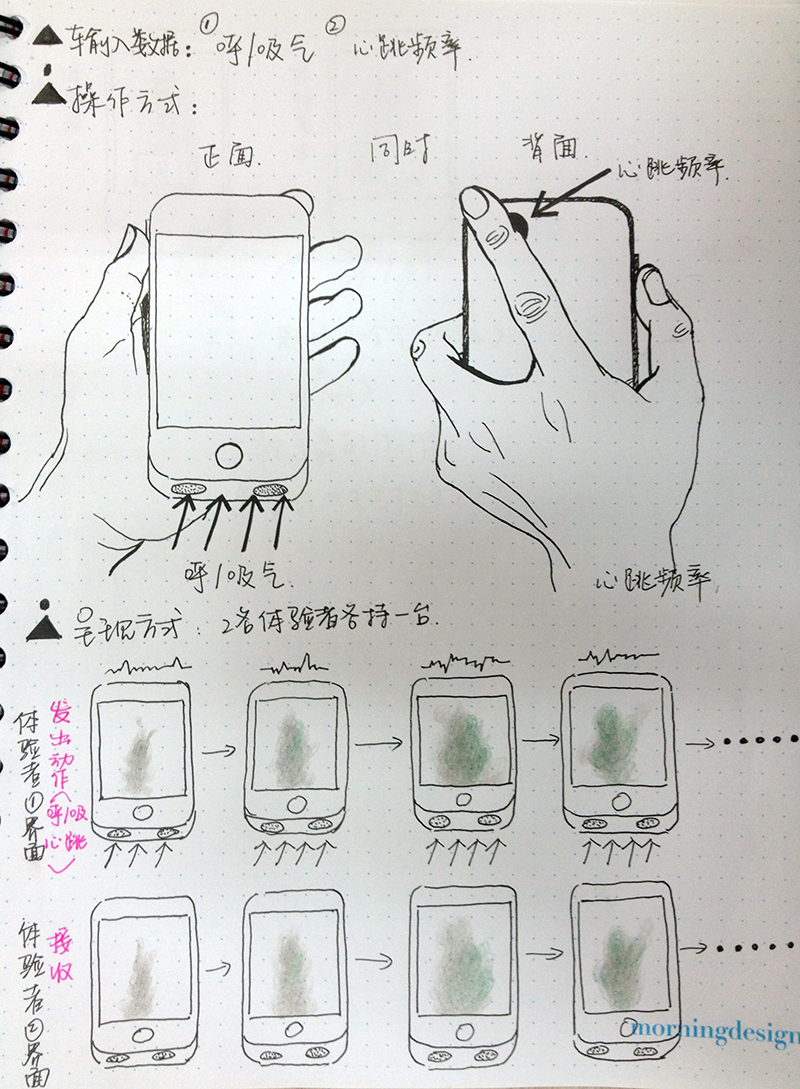 输入数据：①呼/吸气 ②心跳频率.
操作方式：
正面. 同时 背面.
心跳频率.
呼/吸气.
心跳频率
呈现方式：2名体验者各持一台.
体验者①界面
发出动作(呼/吸 心跳)
体验者②界面
接收
morningdesign